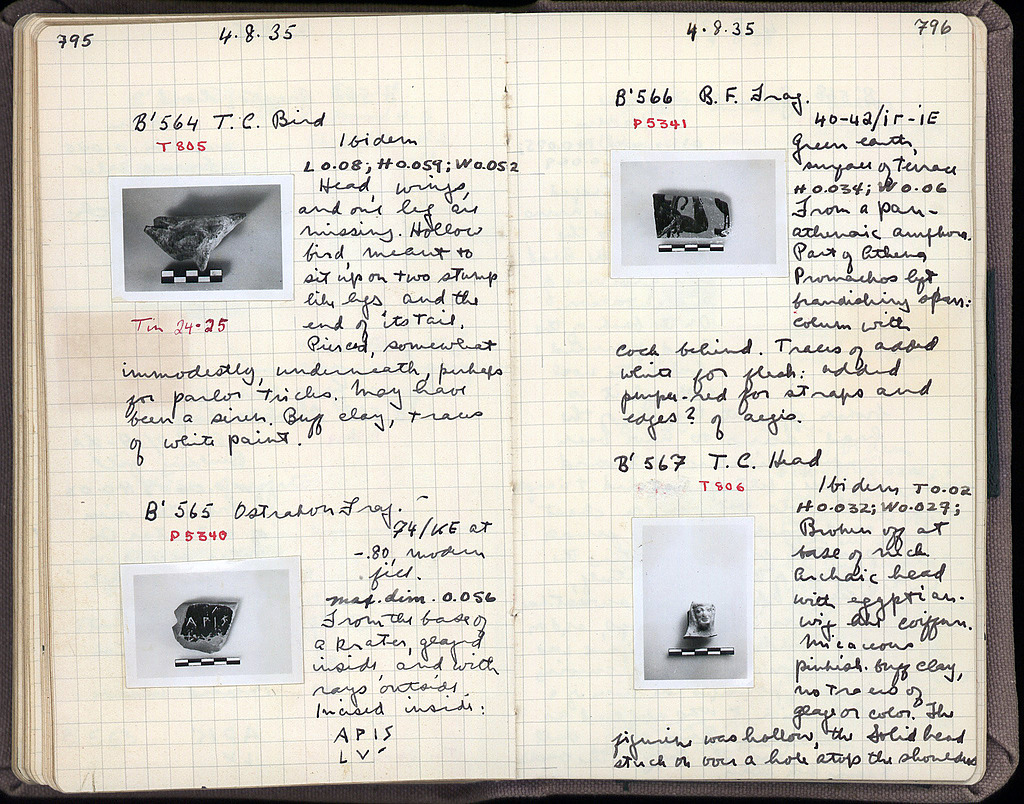 795
4.8.35
B' 564 T.C. Bird
T 805
Ibidem
L 0.08; H 0.059; W 0.052
Head wings,
and one leg are
missing. Hollow
bird, meant to
sit up on two stump
like legs and the
end of its tail.
Pierced, somewhat
immodestly, underneath, perhaps
for parlor tricks. May have
been a siren. Buff clay, traces
of white paint.
Tin 24.25
B' 565 Ostrakon Frag.
P 5340
74/ΚΕ at
-.80, modern
fill.
max. dim. 0.056
From the base of
a krater, glazed
inside and with
rays outside.
Incised inside:
ΑΡΙΣ
LV
4.8.35
796
B' 566 B.F. Frag.
P 5341
40-42/ΙΓ-ΙΕ
Green earth,
surface of terrace
H 0.034; W 0.06
From a pan-
athenaic amphora.
Part of Athena
Promachos left
brandishing spear:
column with
cock behind. Traces of added
white for flesh: added
purple-red for straps and
edges? of aegis.
B' 567 T.C. Head
T 806
Ibidem T 0.02
H 0.032; W 0.029;
Broken off at
base of neck
Archaic head
with egyptian-
wig like coiffure.
Micaceous
pinkish-buff clay,
no traces of
glaze or color. The
figurine was hollow, the solid head
stuck on over a hole atop the shoulders